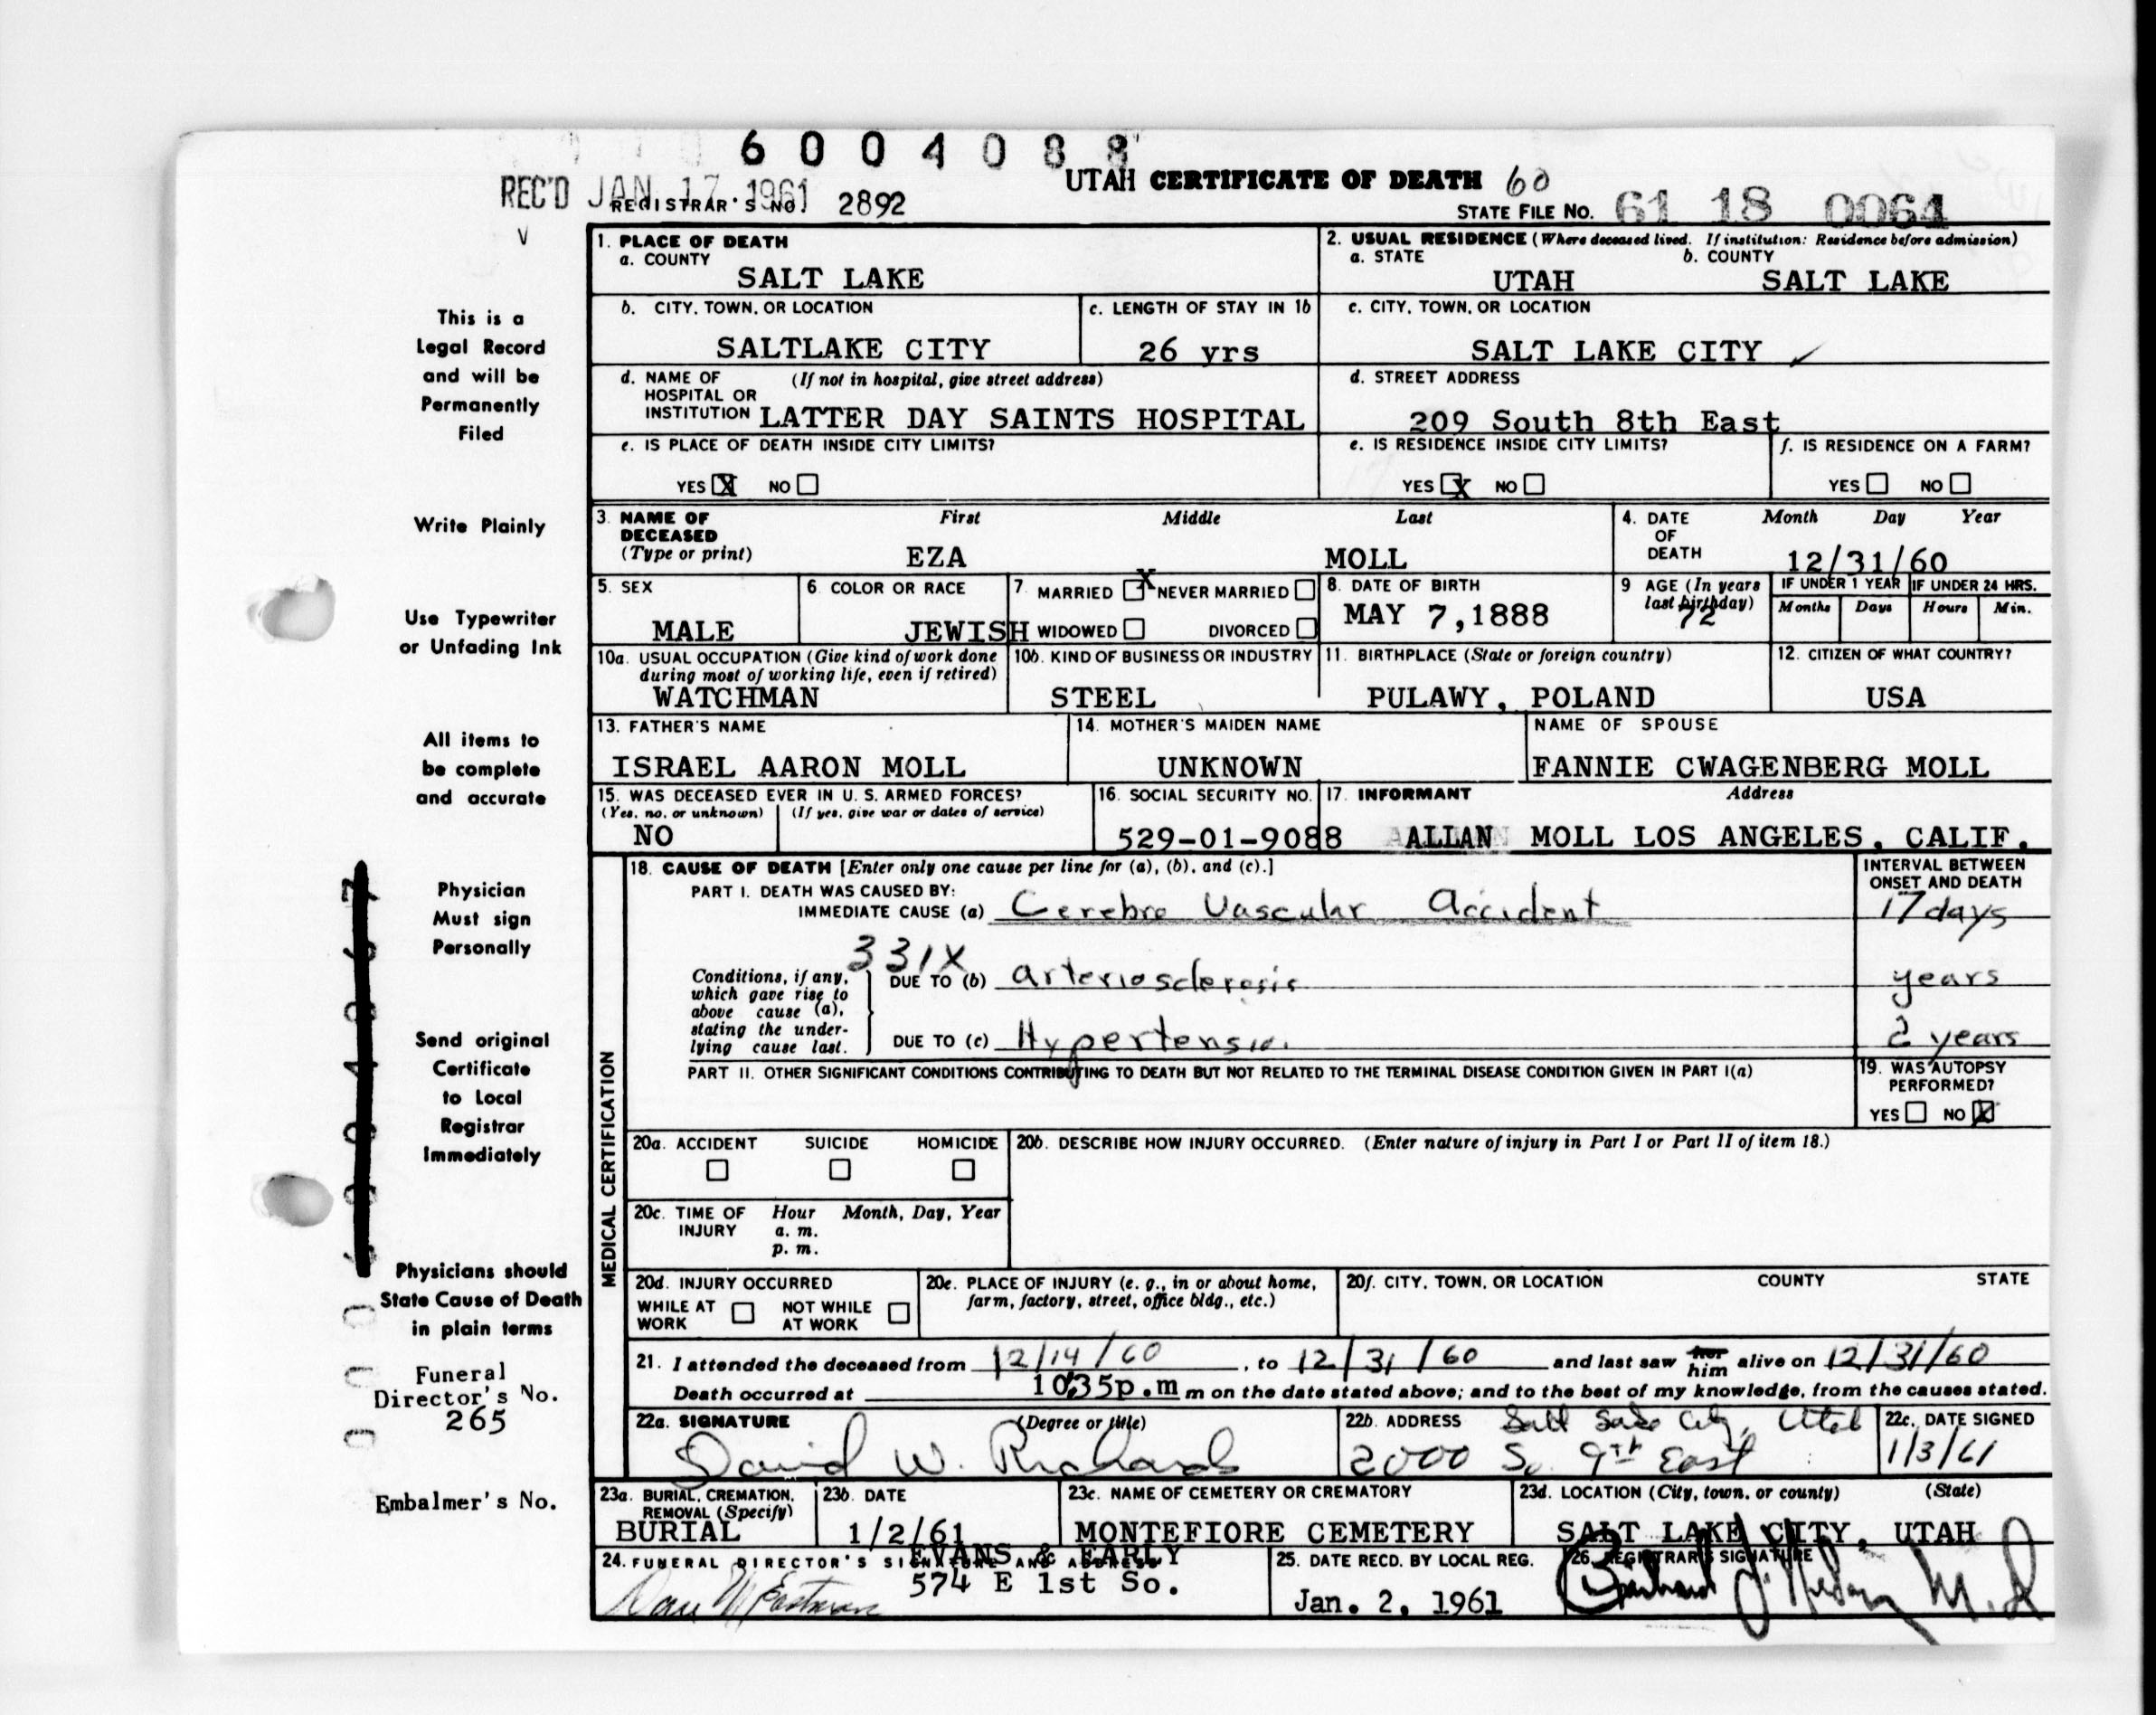 6004088
UTAH CERTIFICATE OF DEATH 60
REC'D JAN 17 1961
REGISTRAR'S NO. 2892
STATE FILE NO. 61 18 0064
1. PLACE OF DEATH
a. COUNTY
SALT LAKE
2. USUAL RESIDENCE (Where deceased lived. If institution: Residence before admission)
a. STATE b. COUNTY
UTAH SALT LAKE
b. CITY, TOWN, OR LOCATION
SALTLAKE CITY
c. LENGTH OF STAY IN 1b
26 yrs
c. CITY, TOWN, OR LOCATION
SALT LAKE CITY
d. NAME OF (If not in hospital, give street address)
HOSPITAL OR
INSTITUTION LATTER DAY SAINTS HOSPITAL
d. STREET ADDRESS
209 South 8th East
e. IS PLACE OF DEATH INSIDE CITY LIMITS?
YES X NO
e. IS RESIDENCE INSIDE CITY LIMITS?
YES X NO
f. IS RESIDENCE ON A FARM?
YES NO
3. NAME OF DECEASED (Type or print)
First Middle Last
EZA MOLL
4. DATE OF DEATH
Month Day Year
12/31/60
5. SEX
MALE
6. COLOR OR RACE
JEWISH
7. MARRIED X NEVER MARRIED
WIDOWED DIVORCED
8. DATE OF BIRTH
MAY 7,1888
9 AGE (In years
last birthday)
72
IF UNDER 1 YEAR IF UNDER 24 HRS.
Months Days Hours Min.
10a. USUAL OCCUPATION (Give kind of work done
during most of working life, even if retired)
WATCHMAN
10b. KIND OF BUSINESS OR INDUSTRY
STEEL
11. BIRTHPLACE (State or foreign country)
PULAWY, POLAND
12. CITIZEN OF WHAT COUNTRY?
USA
13. FATHER'S NAME
ISRAEL AARON MOLL
14. MOTHER'S MAIDEN NAME
UNKNOWN
NAME OF SPOUSE
FANNIE CWAGENBERG MOLL
15. WAS DECEASED EVER IN U. S. ARMED FORCES?
(Yes, no, or unknown) (If yes, give war or dates of service)
NO
16. SOCIAL SECURITY NO.
529-01-9088
17. INFORMANT Address
ALLAN MOLL LOS ANGELES, CALIF.
MEDICAL CERTIFICATION
18. CAUSE OF DEATH [Enter only one cause per line for (a), (b), and (c).]
INTERVAL BETWEEN
ONSET AND DEATH
PART I. DEATH WAS CAUSED BY:
IMMEDIATE CAUSE (a) Cerebro Vascular Accident 17 days
331X
Conditions, if any,
which gave rise to
above cause (a),
stating the under-
lying cause last.
DUE TO (b) arteriosclerosis years
DUE TO (c) Hypertension 2 years
PART II. OTHER SIGNIFICANT CONDITIONS CONTRIBUTING TO DEATH BUT NOT RELATED TO THE TERMINAL DISEASE CONDITION GIVEN IN PART I(a)
19. WAS AUTOPSY
PERFORMED?
YES NO X
20a. ACCIDENT SUICIDE HOMICIDE
20b. DESCRIBE HOW INJURY OCCURRED. (Enter nature of injury in Part I or Part II of item 18.)
20c. TIME OF INJURY
Hour Month, Day, Year
a. m.
p. m.
20d. INJURY OCCURRED
WHILE AT WORK NOT WHILE AT WORK
20e. PLACE OF INJURY (e. g., in or about home,
farm, factory, street, office bldg., etc.)
20f. CITY, TOWN, OR LOCATION COUNTY STATE
21. I attended the deceased from 12/14/60, to 12/31/60 and last saw her him alive on 12/31/60
Death occurred at 10:35p.m m on the date stated above; and to the best of my knowledge, from the causes stated.
22a. SIGNATURE (Degree or title)
David W. Richards
22b. ADDRESS Salt Lake City, Utah
2000 So 9th East
22c. DATE SIGNED
1/3/61
23a. BURIAL, CREMATION,
REMOVAL (Specify)
BURIAL
23b. DATE
1/2/61
23c. NAME OF CEMETERY OR CREMATORY
MONTEFIORE CEMETERY
23d. LOCATION (City, town, or county) (State)
SALT LAKE CITY, UTAH
24. FUNERAL DIRECTOR'S SIGNATURE AND ADDRESS
EVANS & EARLY
574 E 1st So.
25. DATE RECD. BY LOCAL REG.
Jan. 2, 1961
26. REGISTRAR'S SIGNATURE
This is a
Legal Record
and will be
Permanently
Filed
Write Plainly
Use Typewriter
or Unfading Ink
All items to
be complete
and accurate
Physician
Must sign
Personally
Send original
Certificate
to Local
Registrar
Immediately
Physicians should
State Cause of Death
in plain terms
Funeral
Director's No.
265
Embalmer's No.